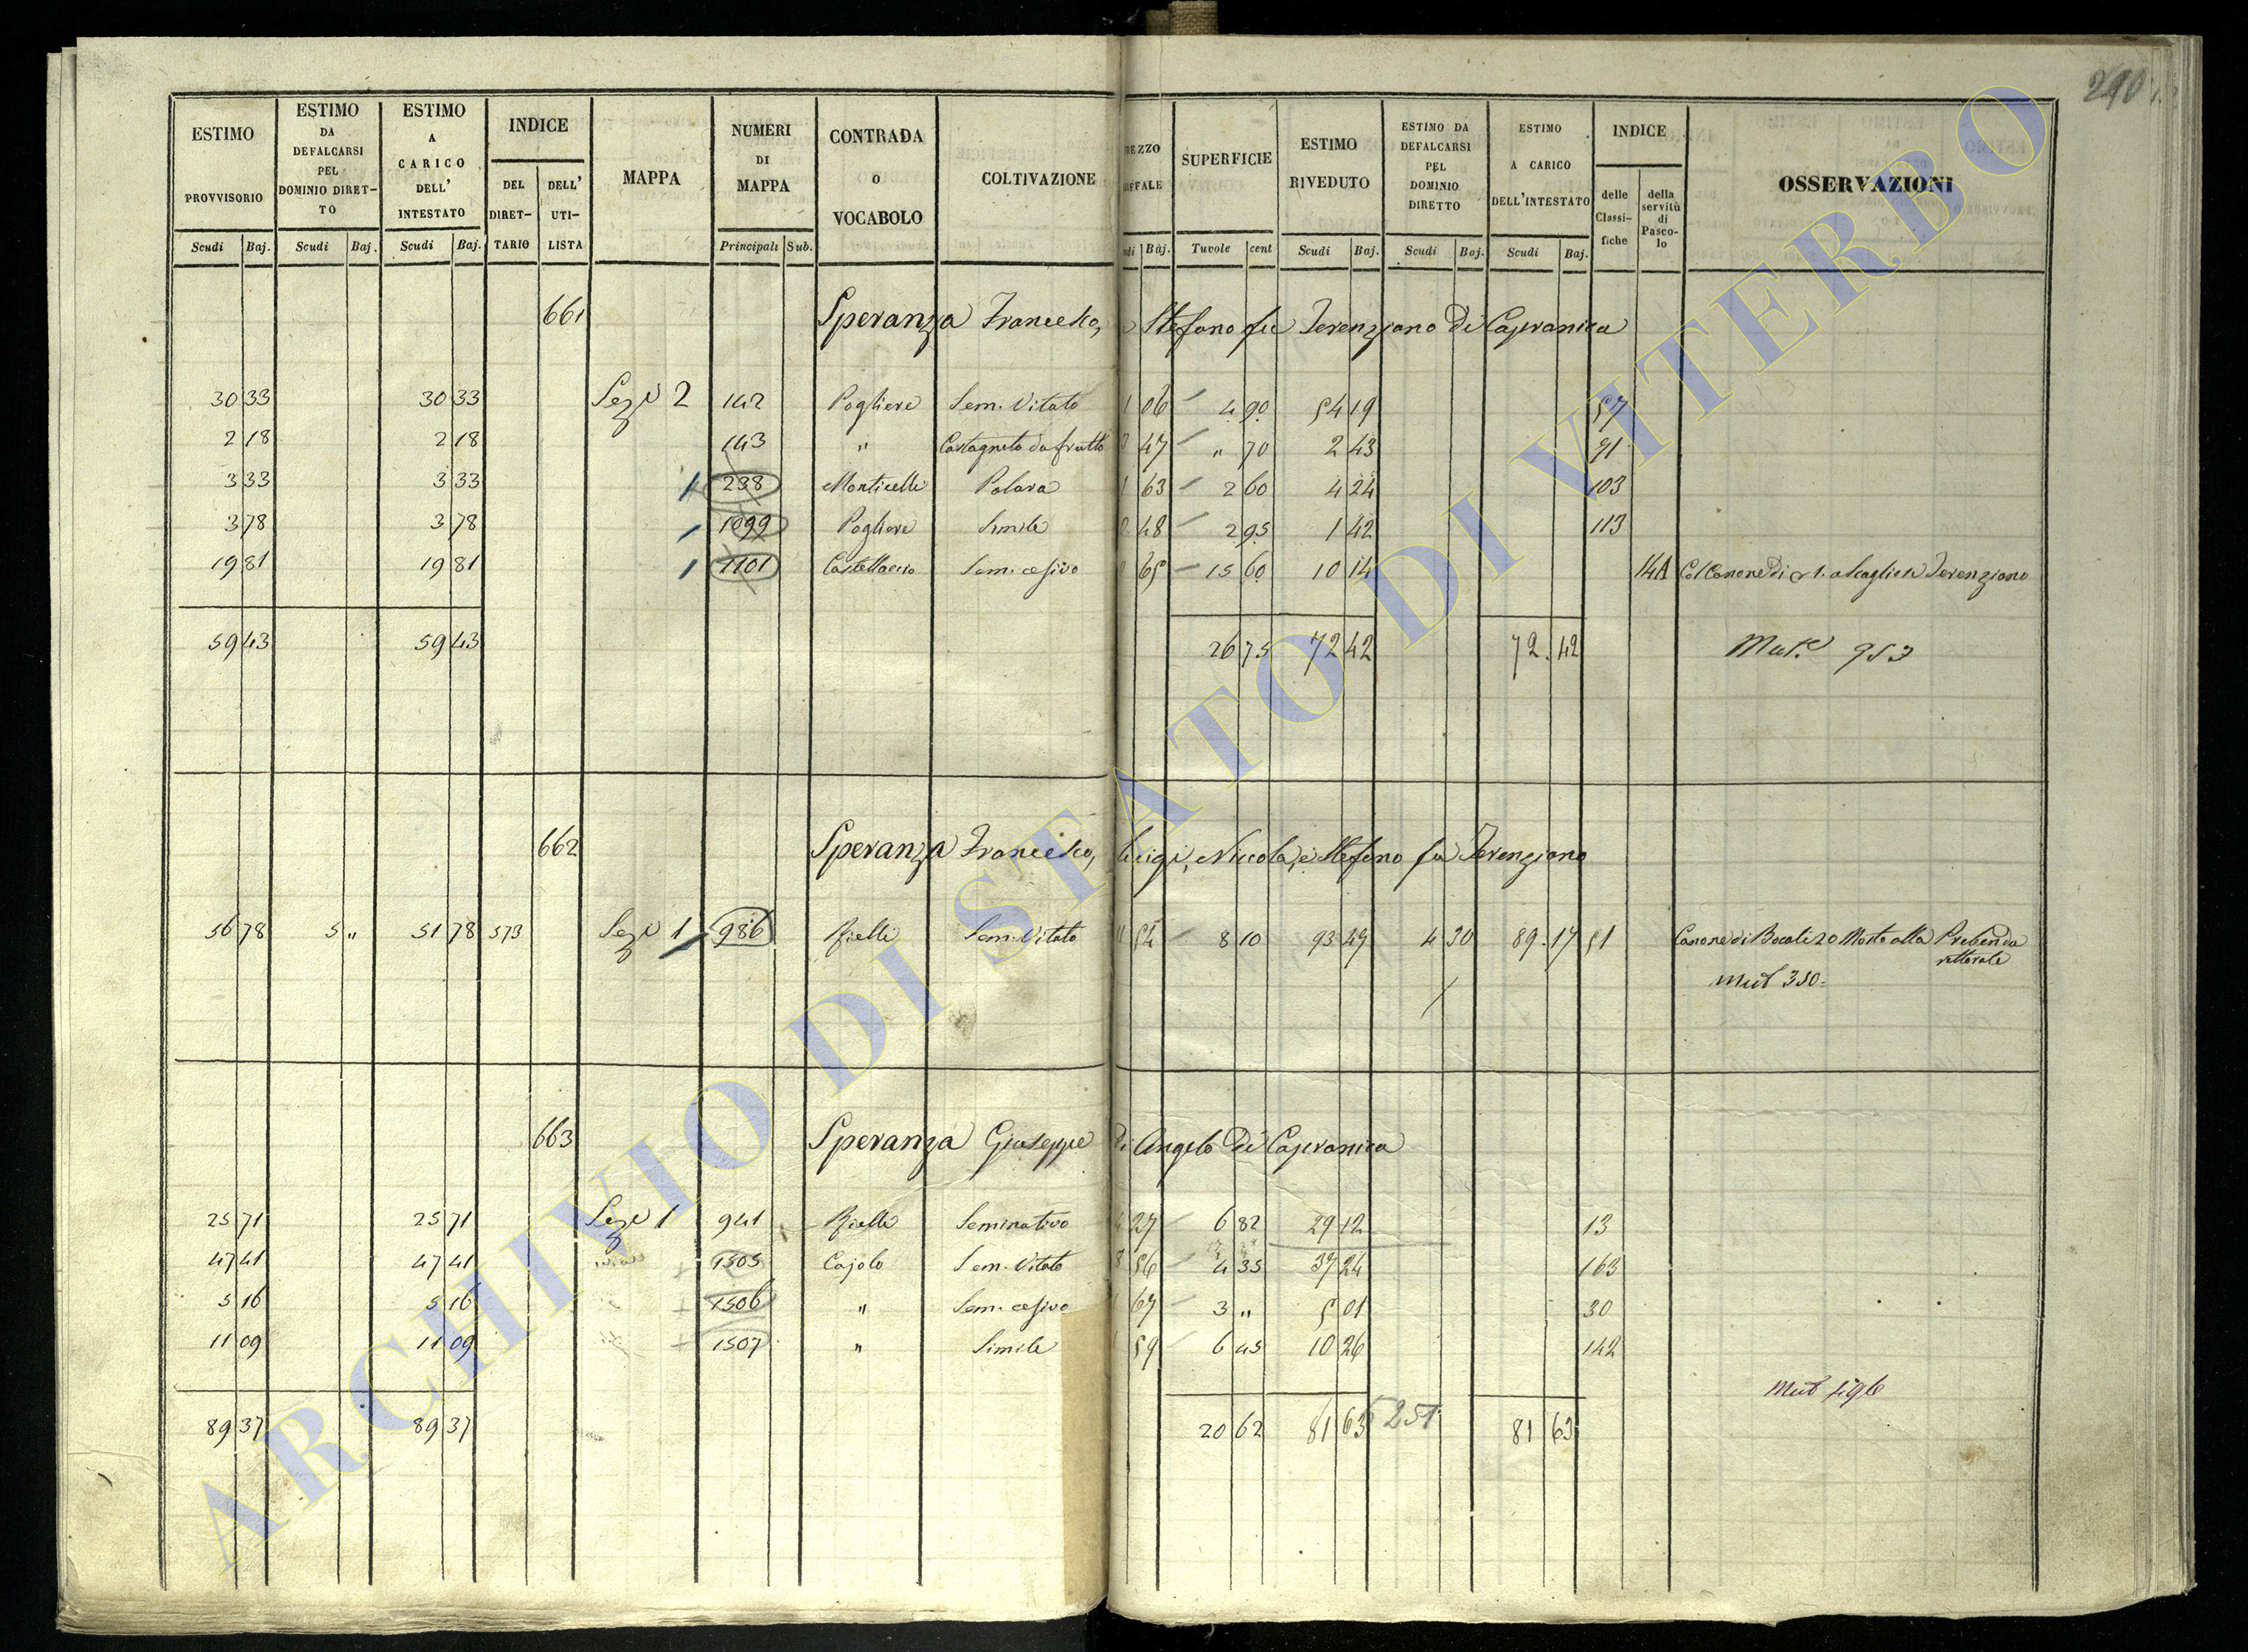 290
ESTIMO PROVVISORIO | ESTIMO DA DEFALCARSI PEL DOMINIO DIRETTO | ESTIMO A CARICO DELL' INTESTATO | INDICE | MAPPA | NUMERI DI MAPPA | CONTRADA O VOCABOLO | COLTIVAZIONE | SUPERFICIE | ESTIMO RIVEDUTO | ESTIMO DA DEFALCARSI PEL DOMINIO DIRETTO | ESTIMO A CARICO DELL'INTESTATO | INDICE | OSSERVAZIONI
DEL DIRETTARIO | DELL' UTILISTA | delle Classifiche | della servitù di Pascolo
Scudi | Baj. | Scudi | Baj. | Scudi | Baj. | Principali | Sub. | Baj. | Tavole | cent | Scudi | Baj. | Scudi | Baj. | Scudi | Baj.
661 Speranza Francesco, e Stefano fu Terenziano di Capranica
30 33 | 30 33 | Sez.e 2 | 142 | Pogliere | Sem. Vitato | 1 06 | 4 90 | 54 19 | 57
2 18 | 2 18 | 143 | " | Castagneto da frutto | 47 | " 70 | 2 43 | 91
3 33 | 3 33 | 1 | 238 | Monticelli | Polara | 1 63 | 2 60 | 4 24 | 103
3 78 | 3 78 | 1 | 1099 | Pogliere | Simile | 48 | 2 95 | 1 42 | 113
19 81 | 19 81 | 1 | 1101 | Castellaccio | Sem. cesivo | 65 | 15 60 | 10 14 | 14A | Col Canone di 1. a Scaglioli Terenziano
59 43 | 59 43 | 26 75 | 72 42 | 72. 42 | Mut.e 953
662 Speranza Francesco, Luigi, Niccola, e Stefano fu Terenziano
56 78 | 5 " | 51 78 | 573 | Sez.e 1 | 986 | Rielli | Sem. Vitato | 11 54 | 8 10 | 93 47 | 4 30 | 89. 17 | 51 | Canone di Bocali 20 Mosto alla Prebenda
rettorale
Mut 350
663 Speranza Giuseppe di Angelo di Capranica
25 71 | 25 71 | Sez.e 1 | 941 | Rielli | Seminativo | 4 27 | 6 82 | 29 12 | 13
47 41 | 47 41 | 1505 | Cajolo | Sem. Vitato | 8 56 | 4 35 | 37 24 | 163
5 16 | 5 16 | 1506 | " | Sem. cesivo | 1 67 | 3 " | 5 01 | 30
11 09 | 11 09 | 1507 | " | Simile | 1 59 | 6 45 | 10 26 | 142
Mut
89 37 | 89 37 | 20 62 | 81 63 | 5251 | 81 63
ARCHIVIO DI STATO DI VITERBO